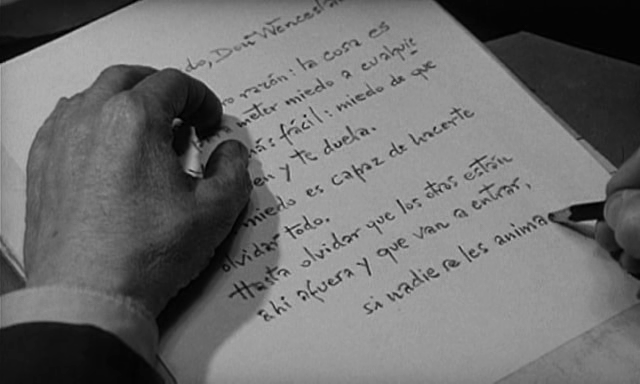 do, Don Wenceslao
razón: la cosa es
meter miedo a cualquie
más fácil: miedo de que
en y te duela.
miedo es capaz de hacerte
olvidar todo.
Hasta olvidar que los otros están
ahí afuera y que van a entrar,
si nadie se les anima